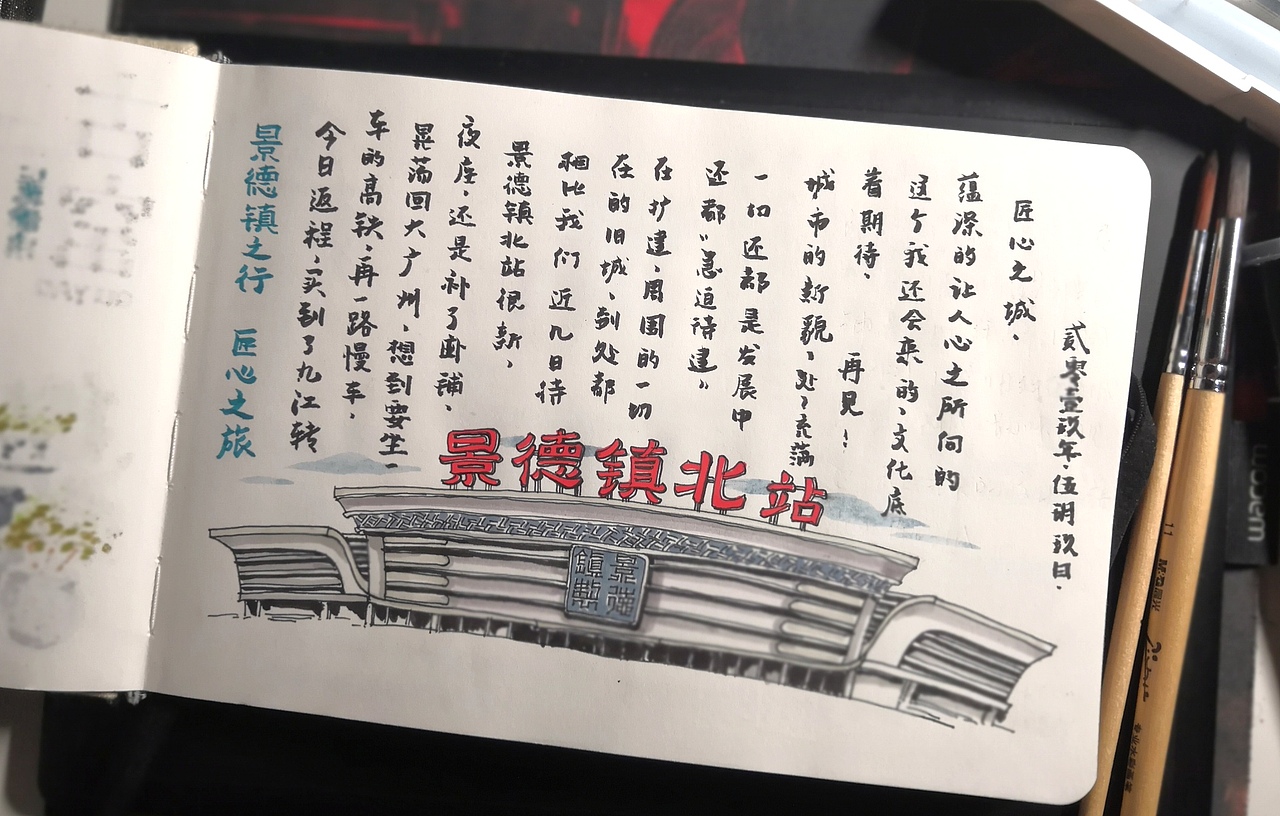 景德镇之行 匠心之旅
今日返程、买到了九江转
车的高铁、再一路慢车、
晃荡回大广州、想到要坐一
夜座、还是补了卧铺、
景德镇北站很新、
相比我们近几日待
在的旧城、到处都
在扩建、周围的一切
还都“急迫待建”
一切还都是发展中
城市的新貌、处处充满
着期待、 再见！
这个我还会来的、文化底
蕴深的让人心之所向的
匠心之城、
贰零壹玖年、伍玥玖日、
景德镇北站
景德
鎮製
wacom
11